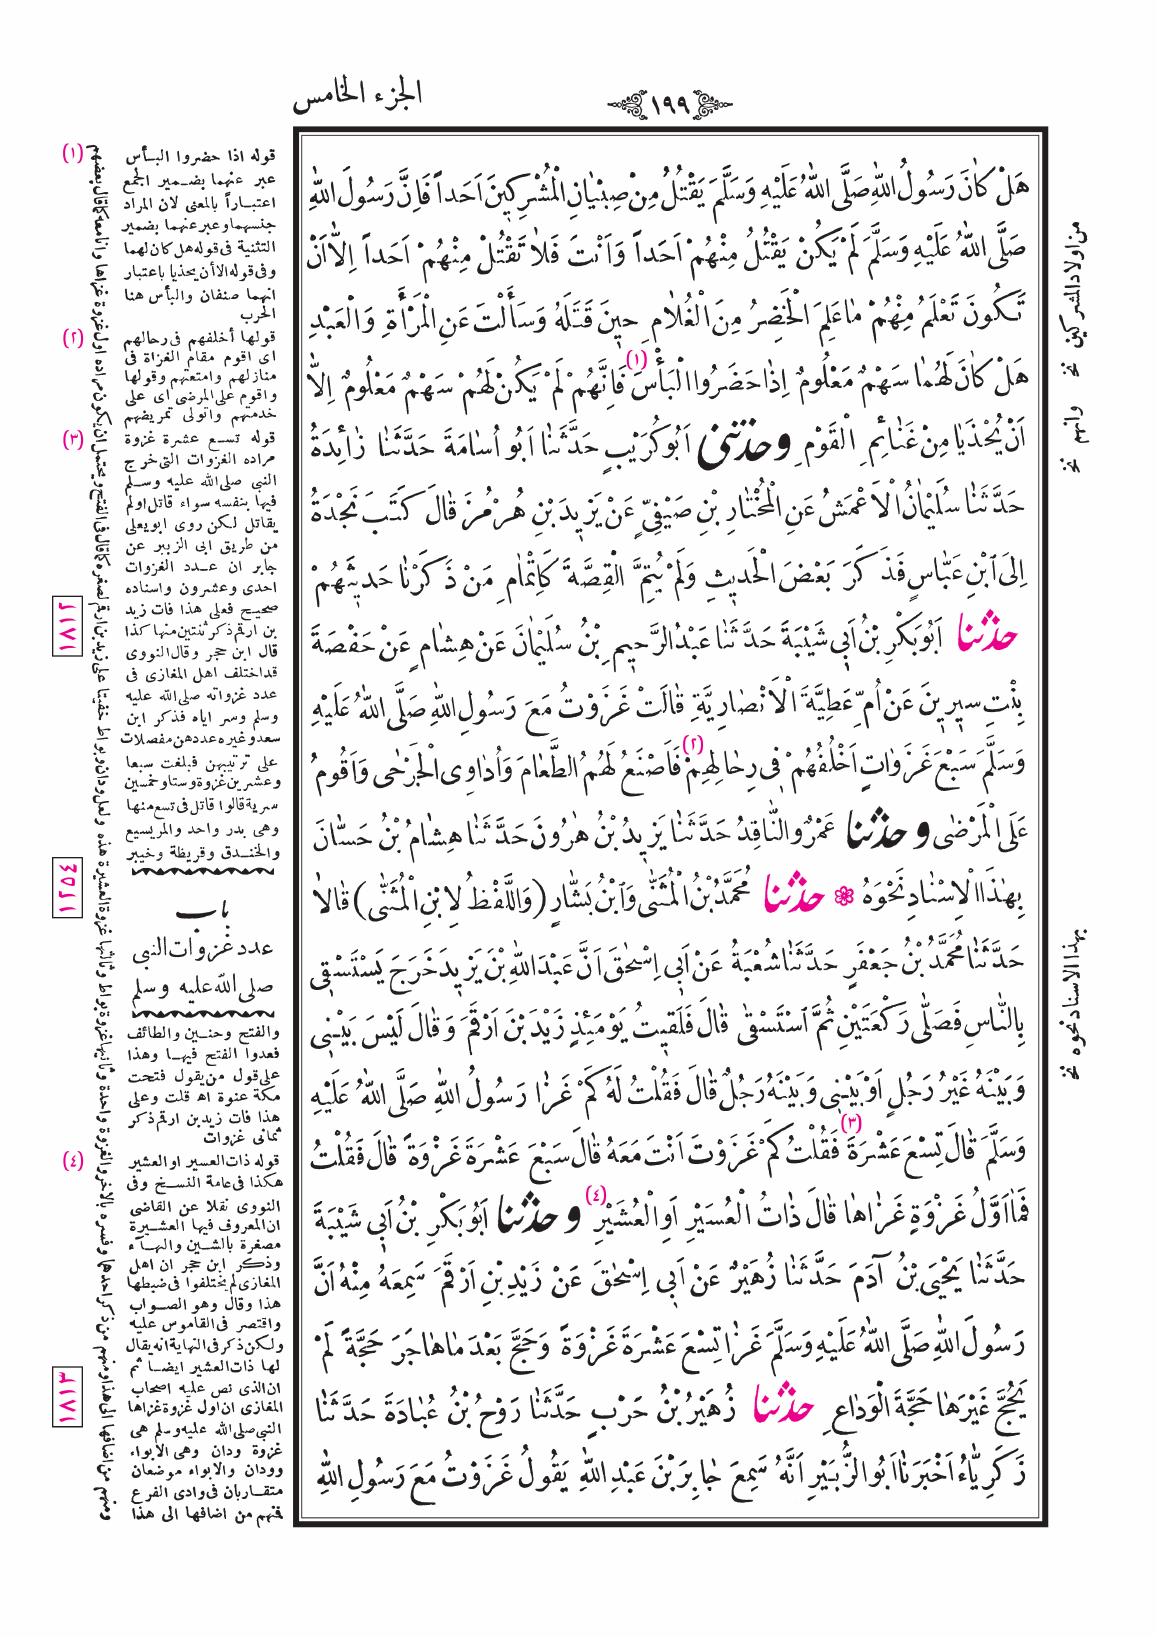 الجزء الخامس
١٩٩
هَلْ كَانَ رَسُولُ اللّٰهِ صَلَّى اللّٰهُ عَلَيْهِ وَسَلَّمَ يَقْتُلُ مِنْ صِبْيَانِ الْمُشْرِكِينَ اَحَداً فَاِنَّ رَسُولَ اللّٰهِ
صَلَّى اللّٰهُ عَلَيْهِ وَسَلَّمَ لَمْ يَكُنْ يَقْتُلُ مِنْهُمْ اَحَداً وَاَنْتَ فَلَا تَقْتُلْ مِنْهُمْ اَحَداً اِلَّا اَنْ
تَكُونَ تَعْلَمُ مِنْهُمْ مَا عَلِمَ الْخَضِرُ مِنَ الْغُلَامِ حِينَ قَتَلَهُ وَسَأَلْتَ عَنِ الْمَرْأَةِ وَالْعَبْدِ
هَلْ كَانَ لَهُمَا سَهْمٌ مَعْلُومٌ اِذَا حَضَرُوا الْبَأْسَ (١) فَاِنَّهُمْ لَمْ يَكُنْ لَهُمْ سَهْمٌ مَعْلُومٌ اِلَّا
اَنْ يُحْذَيَا مِنْ غَنَائِمِ الْقَوْمِ وحدثنى اَبُو كُرَيْبٍ حَدَّثَنَا اَبُو اُسَامَةَ حَدَّثَنَا زَائِدَةُ
حَدَّثَنَا سُلَيْمَانُ الْاَعْمَشُ عَنِ الْمُخْتَارِ بْنِ صَيْفِيٍّ عَنْ يَزِيدَ بْنِ هُرْمُزَ قَالَ كَتَبَ نَجْدَةُ
اِلَى ابْنِ عَبَّاسٍ فَذَكَرَ بَعْضَ الْحَدِيثِ وَلَمْ يُتِمَّ الْقِصَّةَ كَاِتْمَامِ مَنْ ذَكَرْنَا حَدِيثَهُمْ
حدثنا اَبُو بَكْرِ بْنُ اَبِي شَيْبَةَ حَدَّثَنَا عَبْدُ الرَّحِيمِ بْنُ سُلَيْمَانَ عَنْ هِشَامٍ عَنْ حَفْصَةَ
بِنْتِ سِيرِينَ عَنْ اُمِّ عَطِيَّةَ الْاَنْصَارِيَّةِ قَالَتْ غَزَوْتُ مَعَ رَسُولِ اللّٰهِ صَلَّى اللّٰهُ عَلَيْهِ
وَسَلَّمَ سَبْعَ غَزَوَاتٍ اَخْلُفُهُمْ فِي رِحَالِهِمْ (٢) فَاَصْنَعُ لَهُمُ الطَّعَامَ وَاُدَاوِي الْجَرْحٰى وَاَقُومُ
عَلَى الْمَرْضٰى وحدثنا عَمْرٌو النَّاقِدُ حَدَّثَنَا يَزِيدُ بْنُ هٰرُونَ حَدَّثَنَا هِشَامُ بْنُ حَسَّانَ
بِهٰذَا الْاِسْنَادِ نَحْوَهُ حدثنا مُحَمَّدُ بْنُ الْمُثَنّٰى وَابْنُ بَشَّارٍ (وَاللَّفْظُ لِابْنِ الْمُثَنّٰى) قَالَا
حَدَّثَنَا مُحَمَّدُ بْنُ جَعْفَرٍ حَدَّثَنَا شُعْبَةُ عَنْ اَبِي اِسْحٰقَ اَنَّ عَبْدَ اللّٰهِ بْنَ يَزِيدَ خَرَجَ يَسْتَسْقِي
بِالنَّاسِ فَصَلّٰى رَكْعَتَيْنِ ثُمَّ اسْتَسْقٰى قَالَ فَلَقِيتُ يَوْمَئِذٍ زَيْدَ بْنَ اَرْقَمَ وَقَالَ لَيْسَ بَيْنِي
وَبَيْنَهُ غَيْرُ رَجُلٍ اَوْ بَيْنِي وَبَيْنَهُ رَجُلٌ قَالَ فَقُلْتُ لَهُ كَمْ غَزَا رَسُولُ اللّٰهِ صَلَّى اللّٰهُ عَلَيْهِ
وَسَلَّمَ قَالَ تِسْعَ عَشْرَةَ (٣) فَقُلْتُ كَمْ غَزَوْتَ اَنْتَ مَعَهُ قَالَ سَبْعَ عَشْرَةَ غَزْوَةً قَالَ فَقُلْتُ
فَمَا اَوَّلُ غَزْوَةٍ غَزَاهَا قَالَ ذَاتُ الْعُسَيْرِ اَوِ الْعُشَيْرِ (٤) وحدثنا اَبُو بَكْرِ بْنُ اَبِي شَيْبَةَ
حَدَّثَنَا يَحْيَى بْنُ آدَمَ حَدَّثَنَا زُهَيْرٌ عَنْ اَبِي اِسْحٰقَ عَنْ زَيْدِ بْنِ اَرْقَمَ سَمِعَهُ مِنْهُ اَنَّ
رَسُولَ اللّٰهِ صَلَّى اللّٰهُ عَلَيْهِ وَسَلَّمَ غَزَا تِسْعَ عَشْرَةَ غَزْوَةً وَحَجَّ بَعْدَ مَا هَاجَرَ حَجَّةً لَمْ
يَحُجَّ غَيْرَهَا حَجَّةَ الْوَدَاعِ حدثنا زُهَيْرُ بْنُ حَرْبٍ حَدَّثَنَا رَوْحُ بْنُ عُبَادَةَ حَدَّثَنَا
زَكَرِيَّاءُ اَخْبَرَنَا اَبُو الزُّبَيْرِ اَنَّهُ سَمِعَ جَابِرَ بْنَ عَبْدِ اللّٰهِ يَقُولُ غَزَوْتُ مَعَ رَسُولِ اللّٰهِ
من اولاد المشركين نخ
وانهم نخ
بهذا الاسناد نحوه نخ
(١) قوله اذا حضروا البأس
عبر عنهما بضمير الجمع
اعتباراً بالمعنى لان المراد
جنسهما وعبر عنهما بضمير
التثنية فى قوله هل كان لهما
وفى قوله الا أن يحذيا باعتبار
انهما صنفان والبأس هنا
الحرب
(٢) قولها أخلفهم فى رحالهم
اى اقوم مقام الغزاة فى
منازلهم وامتعتهم وقولها
واقوم على المرضى اى على
خدمتهم واتولى تمريضهم
(٣) قوله تسع عشرة غزوة
مراده الغزوات التى خرج
النبى صلى الله عليه وسلم
فيها بنفسه سواء قاتل اولم
يقاتل لكن روى ابو يعلى
من طريق ابى الزبير عن
جابر ان عدد الغزوات
احدى وعشرون واسناده
صحيح فعلى هذا فات زيد
بن ارقم ذكر ثنتين منها كذا
قال ابن حجر وقال النووى
قد اختلف اهل المغازى فى
عدد غزواته صلى الله عليه
وسلم وسر اياه فذكر ابن
سعد وغيره عددهن مفصلات
على ترتيبهن فبلغت سبعا
وعشرين غزوة وستا وخمسين
سرية قالوا قاتل فى تسع منها
وهى بدر واحد والمريسيع
والخندق وقريظة وخيبر
باب
عدد غزوات النبى
صلى الله عليه وسلم
والفتح وحنين والطائف
فعدوا الفتح فيها وهذا
على قول من يقول فتحت
مكة عنوة اه قلت وعلى
هذا فات زيد بن ارقم ذكر
ثمانى غزوات
(٤) قوله ذات العسير او العشير
هكذا فى عامة النسخ وفى
النووى نقلا عن القاضى
ان المعروف فيها العشيرة
مصغرة بالشين والهاء
وذكر ابن حجر ان اهل
المغازى لم يختلفوا فى ضبطها
هذا وقال وهو الصواب
واقتصر فى القاموس عليه
ولكن ذكر فى النهاية انه يقال
لها ذات العشير ايضا ثم
ان الذى نص عليه اصحاب
المغازى ان اول غزوة غزاها
النبى صلى الله عليه وسلم هى
غزوة ودان وهى الابواء
وودان والابواء موضعان
متقاربان فى وادى الفرع
فنهم من اضافها الى هذا
ومنهم من اضافها الى هذا ومنهم من ذكر احدها وفسره بالآخر والغزوة واحدة وثانيها غزوة بواط وثالثها غزوة العشيرة هذه ولعل ودان وبواط خفيتا على زيد بن ارقم لصغره كما قال فى الفتح ويحتمل ان يكون مراده اول غزوة غزاها وانا معه كما قال بعضهم
١٨١٢
١٢٥٤
١٨١٣